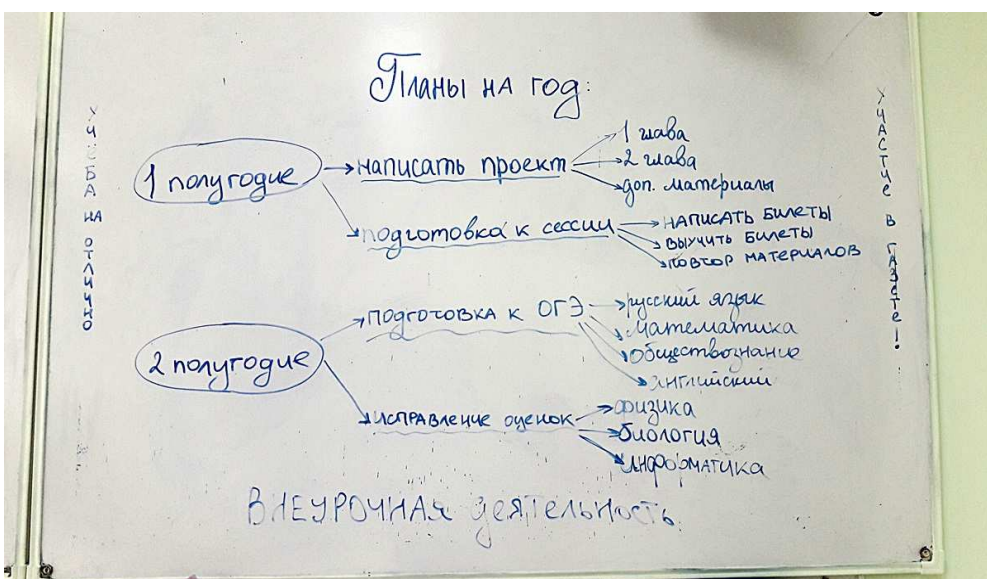 Планы на год:
УЧЕБА НА ОТЛИЧНО
1 полугодие
написать проект
1 глава
2 глава
доп. материалы
подготовка к сессии
НАПИСАТЬ БИЛЕТЫ
ВЫУЧИТЬ БИЛЕТЫ
ПОВТОР МАТЕРИАЛОВ
2 полугодие
ПОДГОТОВКА К ОГЭ
русский язык
математика
обществознание
английский
ИСПРАВЛЕНИЕ оценок
физика
биология
информатика
УЧАСТИЕ В ГАЗЕТЕ!
ВНЕУРОЧНАЯ деятельность